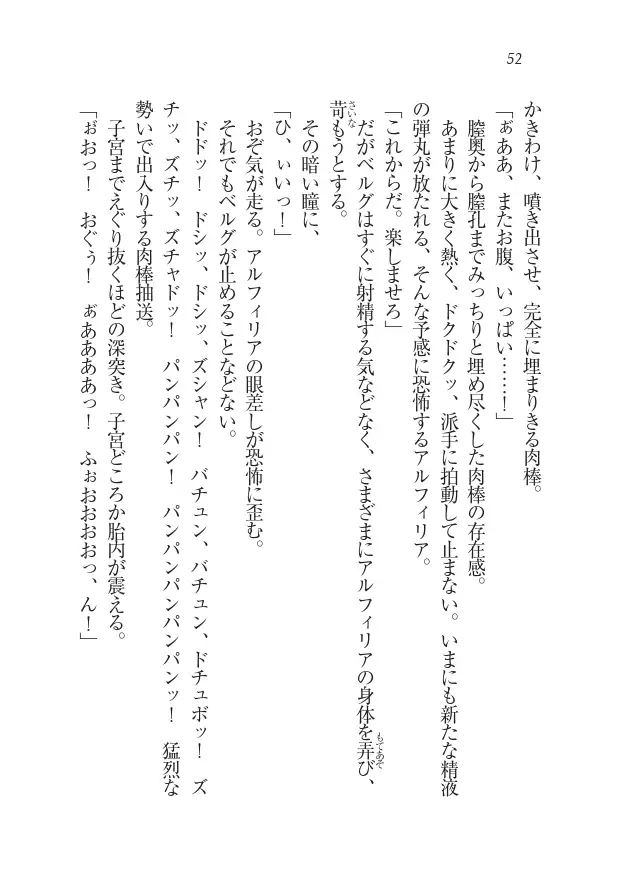 52
かきわけ、噴き出させ、完全に埋まりきる肉棒。
「ぁああ、またお腹、いっぱい……！」
膣奥から膣孔までみっちりと埋め尽くした肉棒の存在感。
あまりに大きく熱く、ドクドクッ、派手に拍動して止まない。いまにも新たな精液
の弾丸が放たれる、そんな予感に恐怖するアルフィリア。
「これからだ。楽しませろ」
だがベルグはすぐに射精する気などなく、さまざまにアルフィリアの身体を弄び、
もてあそ
苛もうとする。
さいな
その暗い瞳に、
「ひ、ぃいっ！」
おぞ気が走る。アルフィリアの眼差しが恐怖に歪む。
それでもベルグが止めることなどない。
ドドッ！　ドシッ、ドシッ、ズシャン！　バチュン、バチュン、ドチュボッ！　ズ
チッ、ズチッ、ズチャドッ！　パンパンパン！　パンパンパンパンパンッ！　猛烈な
勢いで出入りする肉棒抽送。
子宮までえぐり抜くほどの深突き。子宮どころか胎内が震える。
「ぉおっ！　おぐぅ！　ぁあああああっ！　ふぉおおおおっ、ん！」